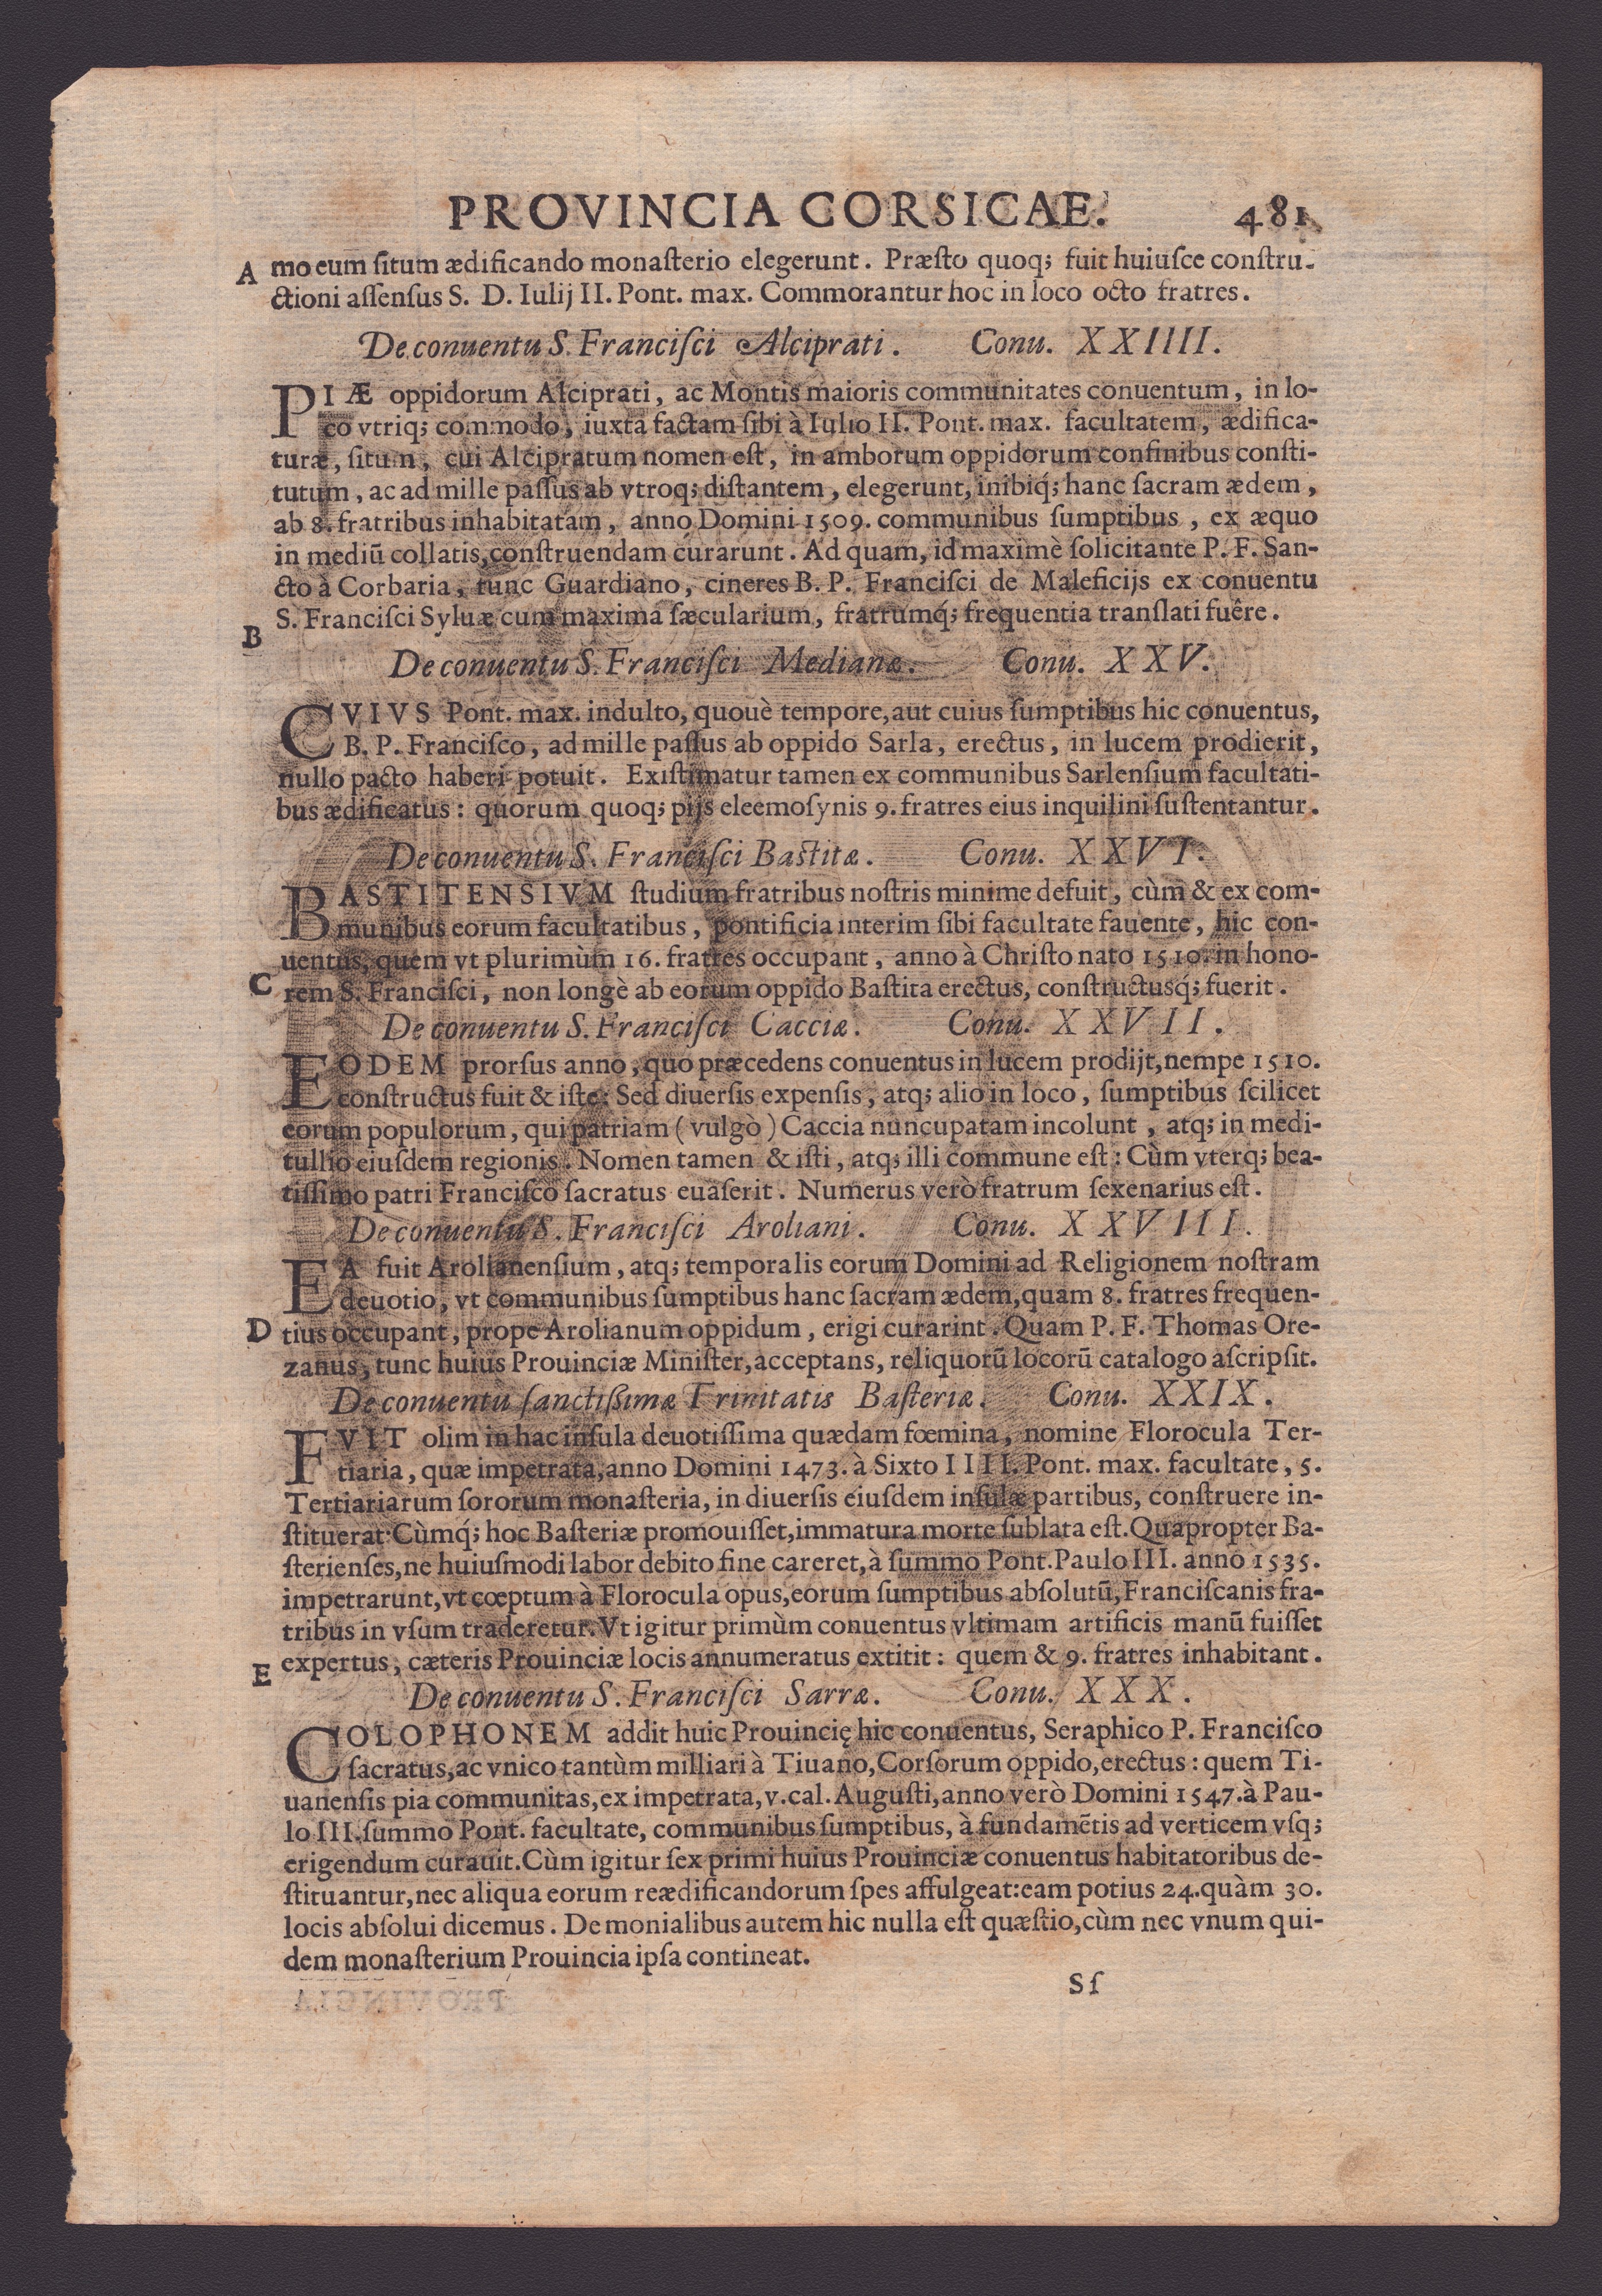 PROVINCIA CORSICAE. 481
A moeum ſitum ædificando monaſterio elegerunt. Præſto quoq; fuit huiuſce conſtru-
ctioni aſſenſus S. D. Iulij II. Pont. max. Commorantur hoc in loco octo fratres.
De conuentu S. Franciſci Alciprati. Conu. XXIIII.
PIÆ oppidorum Alciprati, ac Montis maioris communitates conuentum, in lo-
co vtriq; commodo, iuxta factam ſibi à Iulio II. Pont. max. facultatem, ædifica-
turæ, ſitum, cui Alcipratum nomen eſt, in amborum oppidorum confinibus conſti-
tutum, ac ad mille paſſus ab vtroq; diſtantem, elegerunt, inibiq́; hanc ſacram ædem,
ab 8. fratribus inhabitatam, anno Domini 1509. communibus ſumptibus, ex æquo
in mediũ collatis, conſtruendam curarunt. Ad quam, id maximè ſolicitante P. F. San-
cto à Corbaria, tunc Guardiano, cineres B. P. Franciſci de Maleficijs ex conuentu
S. Franciſci Syluæ cum maxima ſæcularium, fratrumq́; frequentia tranſlati fuêre.
B
De conuentu S. Franciſci Medianæ. Conu. XXV.
CVIVS Pont. max. indulto, quouè tempore, aut cuius ſumptibus hic conuentus,
B. P. Franciſco, ad mille paſſus ab oppido Sarla, erectus, in lucem prodierit,
nullo pacto haberi potuit. Exiſtimatur tamen ex communibus Sarlenſium facultati-
bus ædificatus: quorum quoq; pijs eleemoſynis 9. fratres eius inquilini ſuſtentantur.
De conuentu S. Franciſci Baſtitæ. Conu. XXVI.
BASTITENSIVM ſtudium fratribus noſtris minime defuit, cùm & ex com-
munibus eorum facultatibus, pontificia interim ſibi facultate fauente, hic con-
uentus, quem vt plurimùm 16. fratres occupant, anno à Chriſto nato 1510. in hono-
C rem S. Franciſci, non longè ab eorum oppido Baſtita erectus, conſtructusq́; fuerit.
De conuentu S. Franciſci Cacciæ. Conu. XXVII.
EODEM prorſus anno, quo præcedens conuentus in lucem prodijt, nempe 1510.
conſtructus fuit & iſte: Sed diuerſis expenſis, atq; alio in loco, ſumptibus ſcilicet
eorum populorum, qui patriam (vulgò) Caccia nuncupatam incolunt, atq; in medi-
tullio eiuſdem regionis. Nomen tamen & iſti, atq; illi commune eſt: Cùm vterq; bea-
tiſſimo patri Franciſco ſacratus euaſerit. Numerus verò fratrum ſexenarius eſt.
De conuentu S. Franciſci Aroliani. Conu. XXVIII.
EA fuit Arolianenſium, atq; temporalis eorum Domini ad Religionem noſtram
deuotio, vt communibus ſumptibus hanc ſacram ædem, quam 8. fratres frequen-
D tius occupant, prope Arolianum oppidum, erigi curarint. Quam P. F. Thomas Ore-
zanus, tunc huius Prouinciæ Miniſter, acceptans, reliquorũ locorũ catalogo aſcripſit.
De conuentu ſanctißimæ Trinitatis Baſteriæ. Conu. XXIX.
FVIT olim in hac inſula deuotiſſima quædam fœmina, nomine Florocula Ter-
tiaria, quæ impetrata, anno Domini 1473. à Sixto IIII. Pont. max. facultate, 5.
Tertiariarum ſororum monaſteria, in diuerſis eiuſdem inſulæ partibus, conſtruere in-
ſtituerat: Cùmq́; hoc Baſteriæ promouiſſet, immatura morte ſublata eſt. Quapropter Ba-
ſterienſes, ne huiuſmodi labor debito fine careret, à ſummo Pont. Paulo III. anno 1535.
impetrarunt, vt cœptum à Florocula opus, eorum ſumptibus abſolutũ, Franciſcanis fra-
tribus in vſum traderetur. Vt igitur primùm conuentus vltimam artificis manũ fuiſſet
E expertus, cæteris Prouinciæ locis annumeratus extitit: quem & 9. fratres inhabitant.
De conuentu S. Franciſci Sarræ. Conu. XXX.
COLOPHONEM addit huic Prouincię hic conuentus, Seraphico P. Franciſco
ſacratus, ac vnico tantùm milliari à Tiuano, Corſorum oppido, erectus: quem Ti-
uanenſis pia communitas, ex impetrata, v. cal. Auguſti, anno verò Domini 1547. à Pau-
lo III. ſummo Pont. facultate, communibus ſumptibus, à fundamẽtis ad verticem vſq;
erigendum curauit. Cùm igitur ſex primi huius Prouinciæ conuentus habitatoribus de-
ſtituantur, nec aliqua eorum reædificandorum ſpes affulgeat: eam potius 24. quàm 30.
locis abſolui dicemus. De monialibus autem hic nulla eſt quæſtio, cùm nec vnum qui-
dem monaſterium Prouincia ipſa contineat.
Sſ